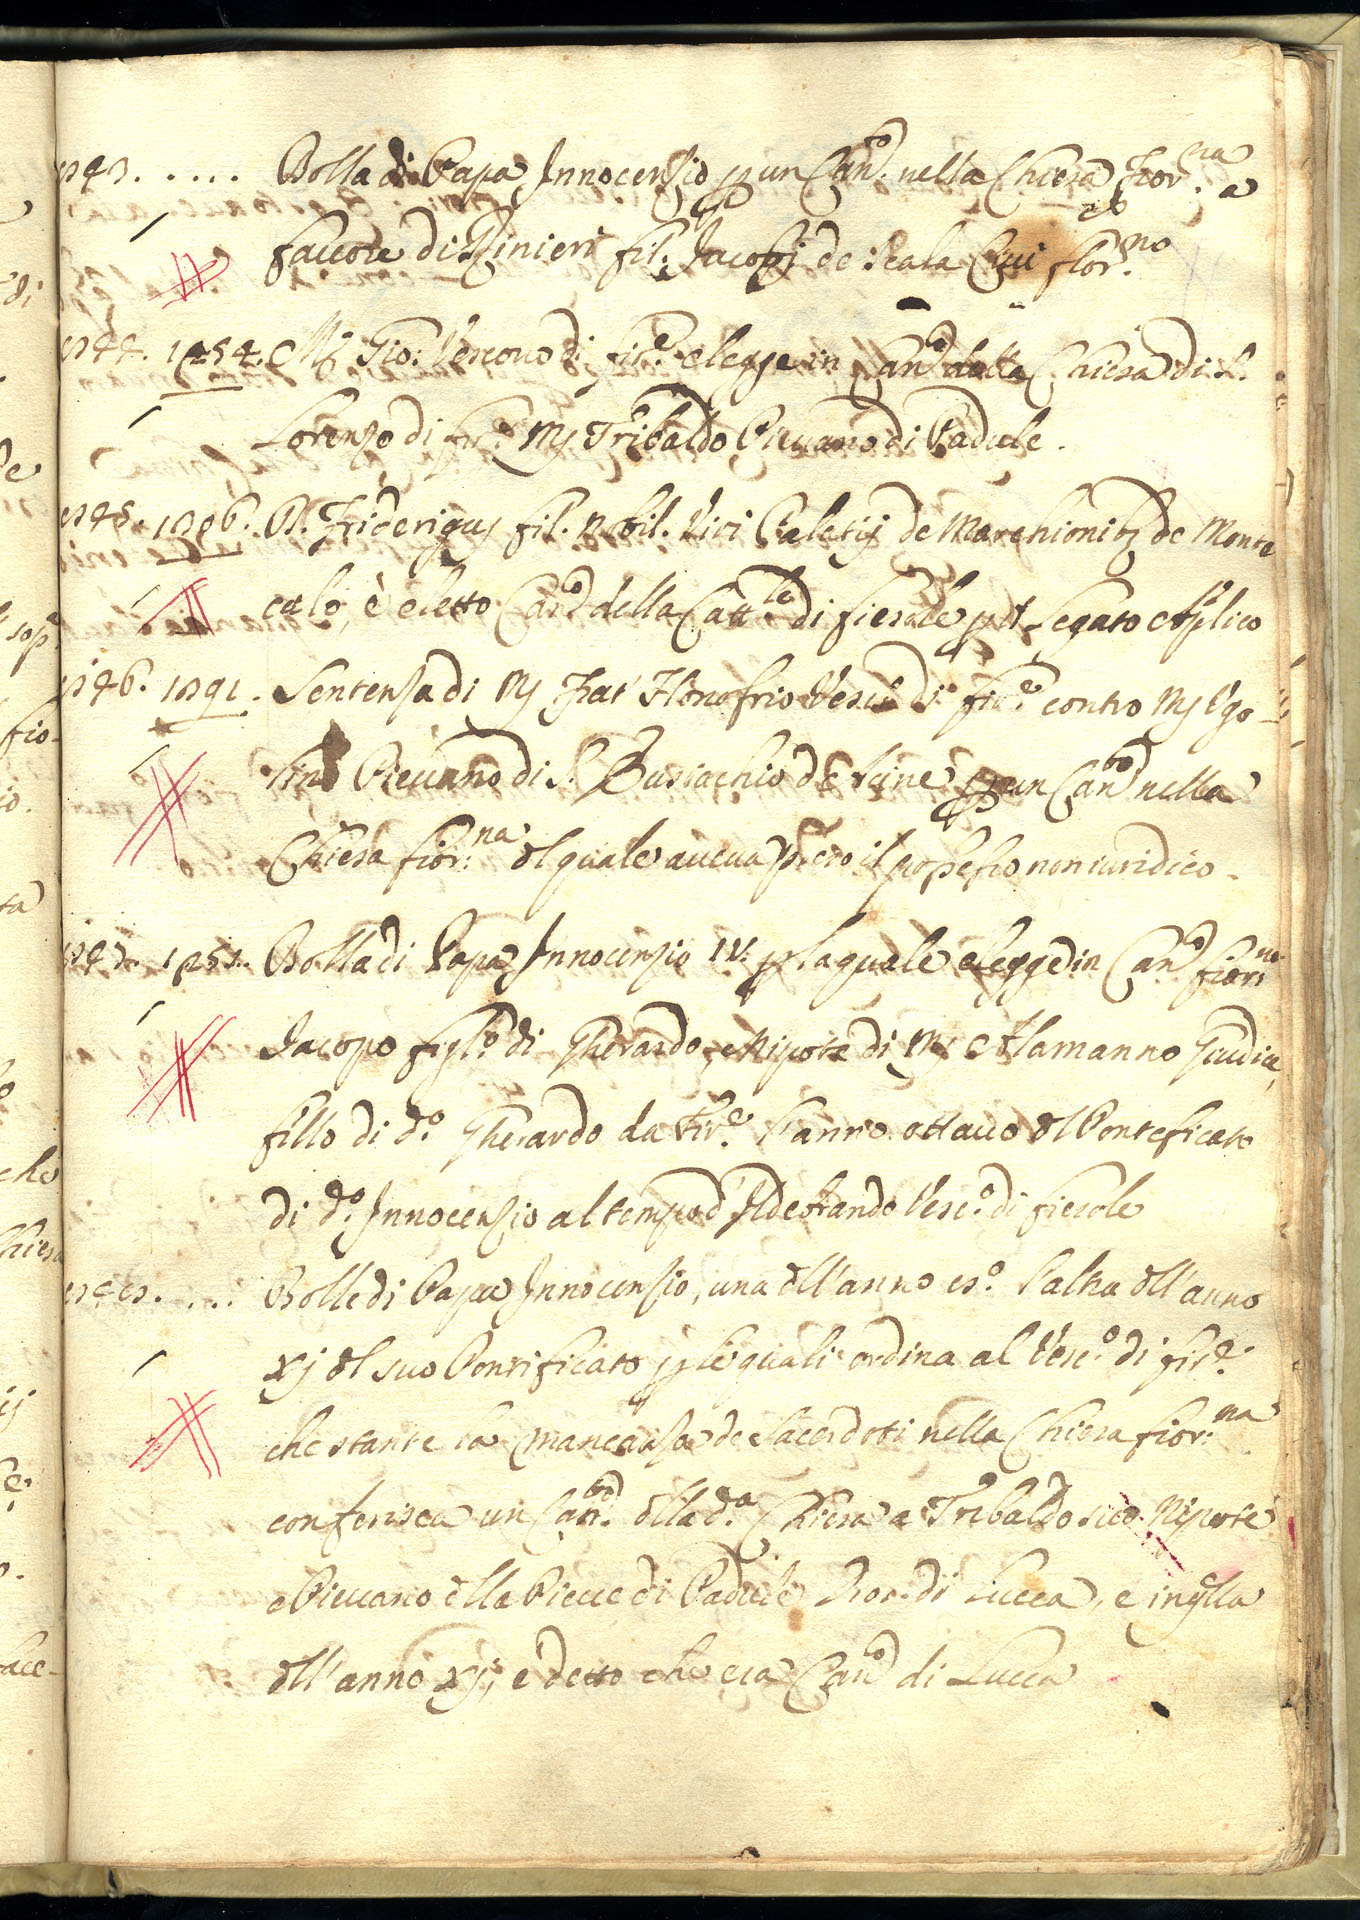 1243. .... Bolla di Papa Innocenzio p un Can.to nella Chiesa Fior.na a
favore di Rinieri fil. Jacopi de Scala Civi flor.no
1244. 1254. M.r Gio: Vescovo di fir.e elegge in Can.co della Chiesa di S.
Lorenzo di fir.e M.r Tribaldo Pievano di Padule.
1245. 1296. D. Friderigus fil. Nobil. Viri de Marchionib. de Monte
calo, è eletto Can.co della Catt.le di fiesole p il Legato Aplico
1246. 1291. Sentenza di M.r Frat' Honofrio Vesc.o di fir.e contro M.r Ugo-
lino Pievano di S. p un Can.to nella
Chiesa fior.na dl quale aveva preso il possesso non iuridico.
1247. 1251. Bolla di Papa Innocenzio IV. p la quale elegge in Can.co fior.no
Jacopo figl.o di Gherardo, Nipote di M.r Alamanno Giudice,
fillo di d.o Gherardo da fir.e l'anno ottavo dl Pontificato
di d.o Innocenzio al tempo d'Ildebrando Vesc.o di fiesole
.... Bolle di Papa Innocenzio, una dll'anno l'altra dll'anno
xj dl suo Pontificato p le quali ordina al Vesc.o di fir.e
che stante la mancanza de Sacerdoti nella Chiesa fior.na
conferisca un Can.to dlla d.a Chiesa a Tribaldo suo Nipote
e Pievano dlla Pieve di Padule di Lucca, e in qlla
dll'anno xj, è detto che era Can.co di Lucca